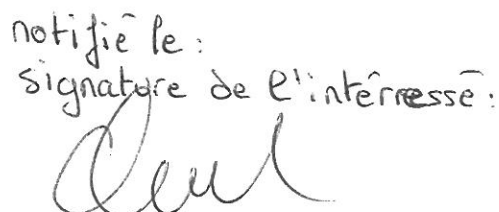 notifié le :
signature de l'intérressé :